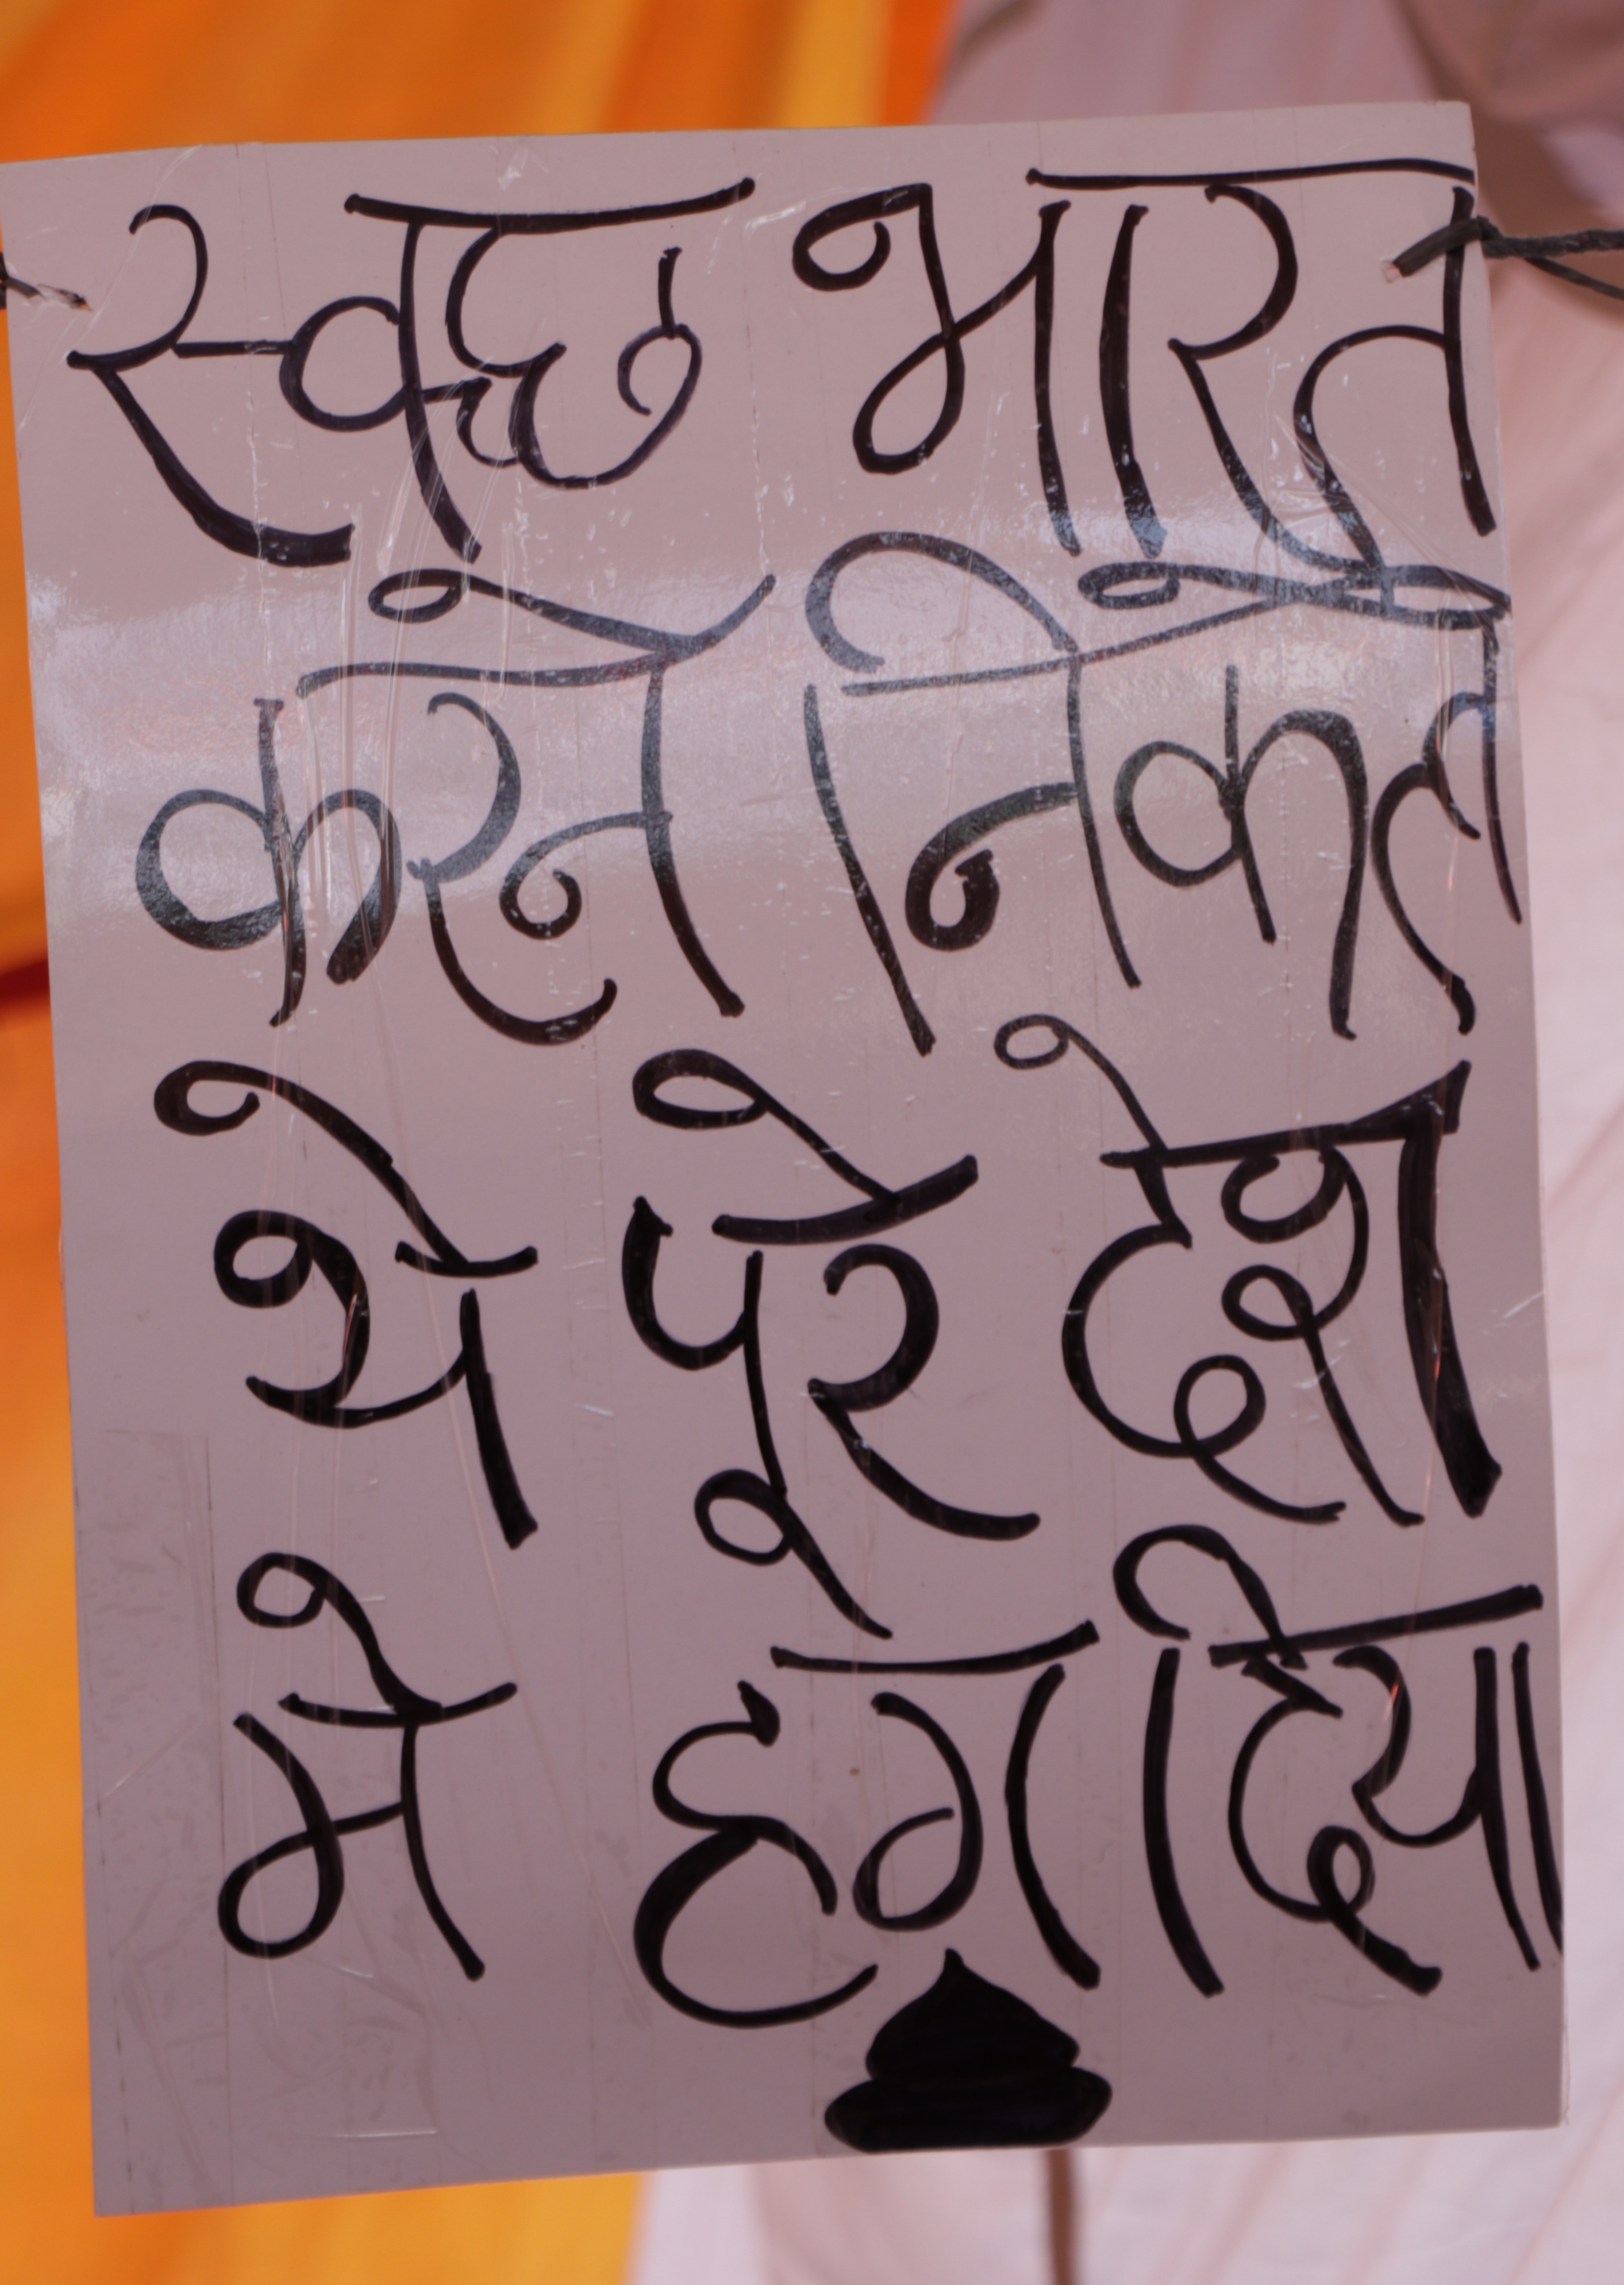 स्वच्छ भारत
करने निकले
थे पूरे देश
मे हग दिया